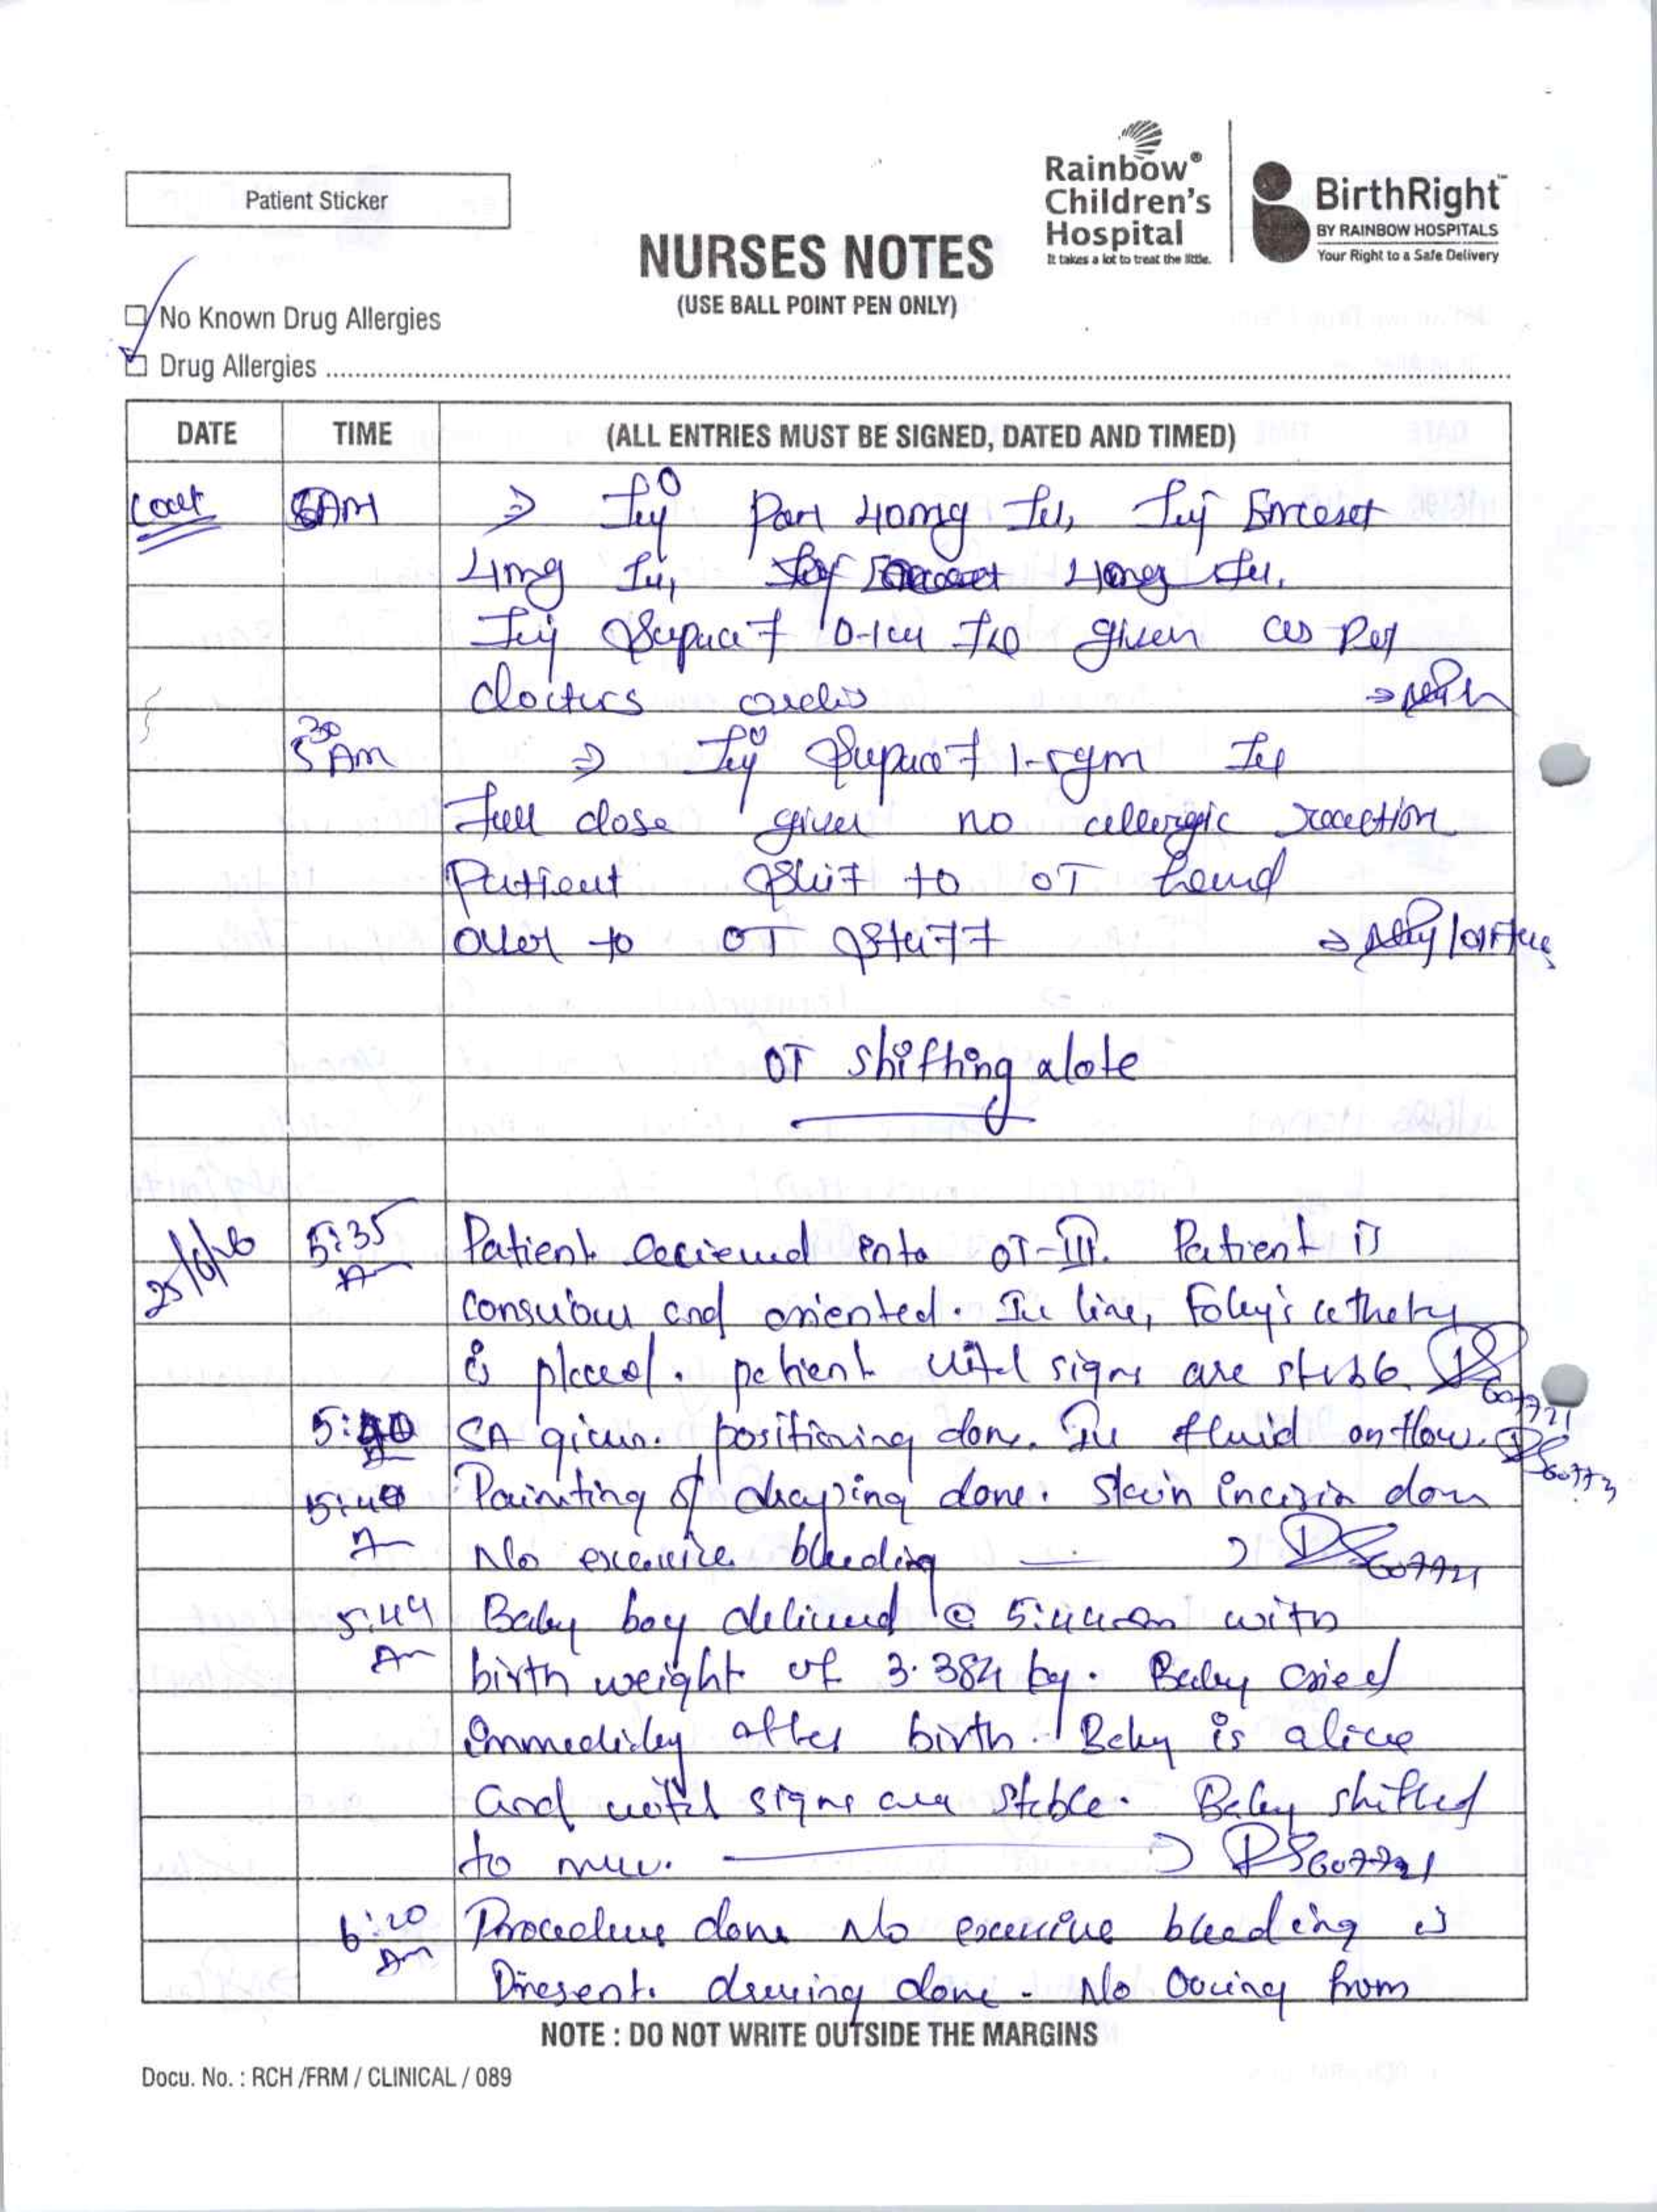 Patient Sticker
Rainbow®
Children's
Hospital
It takes a lot to treat the little.
BirthRight™
BY RAINBOW HOSPITALS
Your Right to a Safe Delivery
NURSES NOTES
(USE BALL POINT PEN ONLY)
No Known Drug Allergies
Drug Allergies
DATE TIME (ALL ENTRIES MUST BE SIGNED, DATED AND TIMED)
5AM ⇒ Inj Pan 40mg Iv, Inj Emeset
4mg Iv,
Inj Supacef given as per
doctors
5 30 Am ⇒ Inj Supacef 1-5gm Iv
Full dose given no allergic reaction
Patient shift to OT hand
over to OT staff
OT shifting note
25/6/26 5:35 Am Patient recieved into OT-III. Patient is
conscious and oriented. Iv line, Foley's catheter
is placed. patient vital signs are stable. DS 607721
5:40 SA given. positioning done. Iv fluid on flow.
Painting & draping done. Skin incision done
No excessive bleeding
5:44 Am Baby boy delivered @ 5:44am with
birth weight of 3.384 kg. Baby cried
immediatley after birth. Baby is alive
and vital signs are stable. Baby shifted
to
6:20 Am Procedure done No excessive bleeding is
Present. dressing done - No oozing from
NOTE : DO NOT WRITE OUTSIDE THE MARGINS
Docu. No. : RCH /FRM / CLINICAL / 089